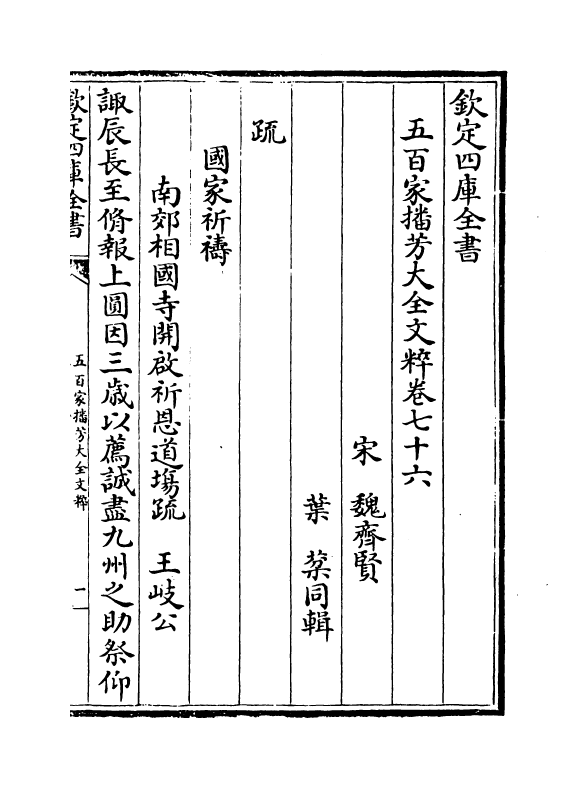 欽定四庫全書
五百家播芳大全文粹卷七十六
宋 魏齊賢
葉 棻同輯
疏
國家祈禱
南郊相國寺開啟祈恩道塲疏 王岐公
諏辰長至脩報上圓因三歳以薦誠盡九州之助祭仰
欽定四庫全書
五百家播芳大全文粹
一